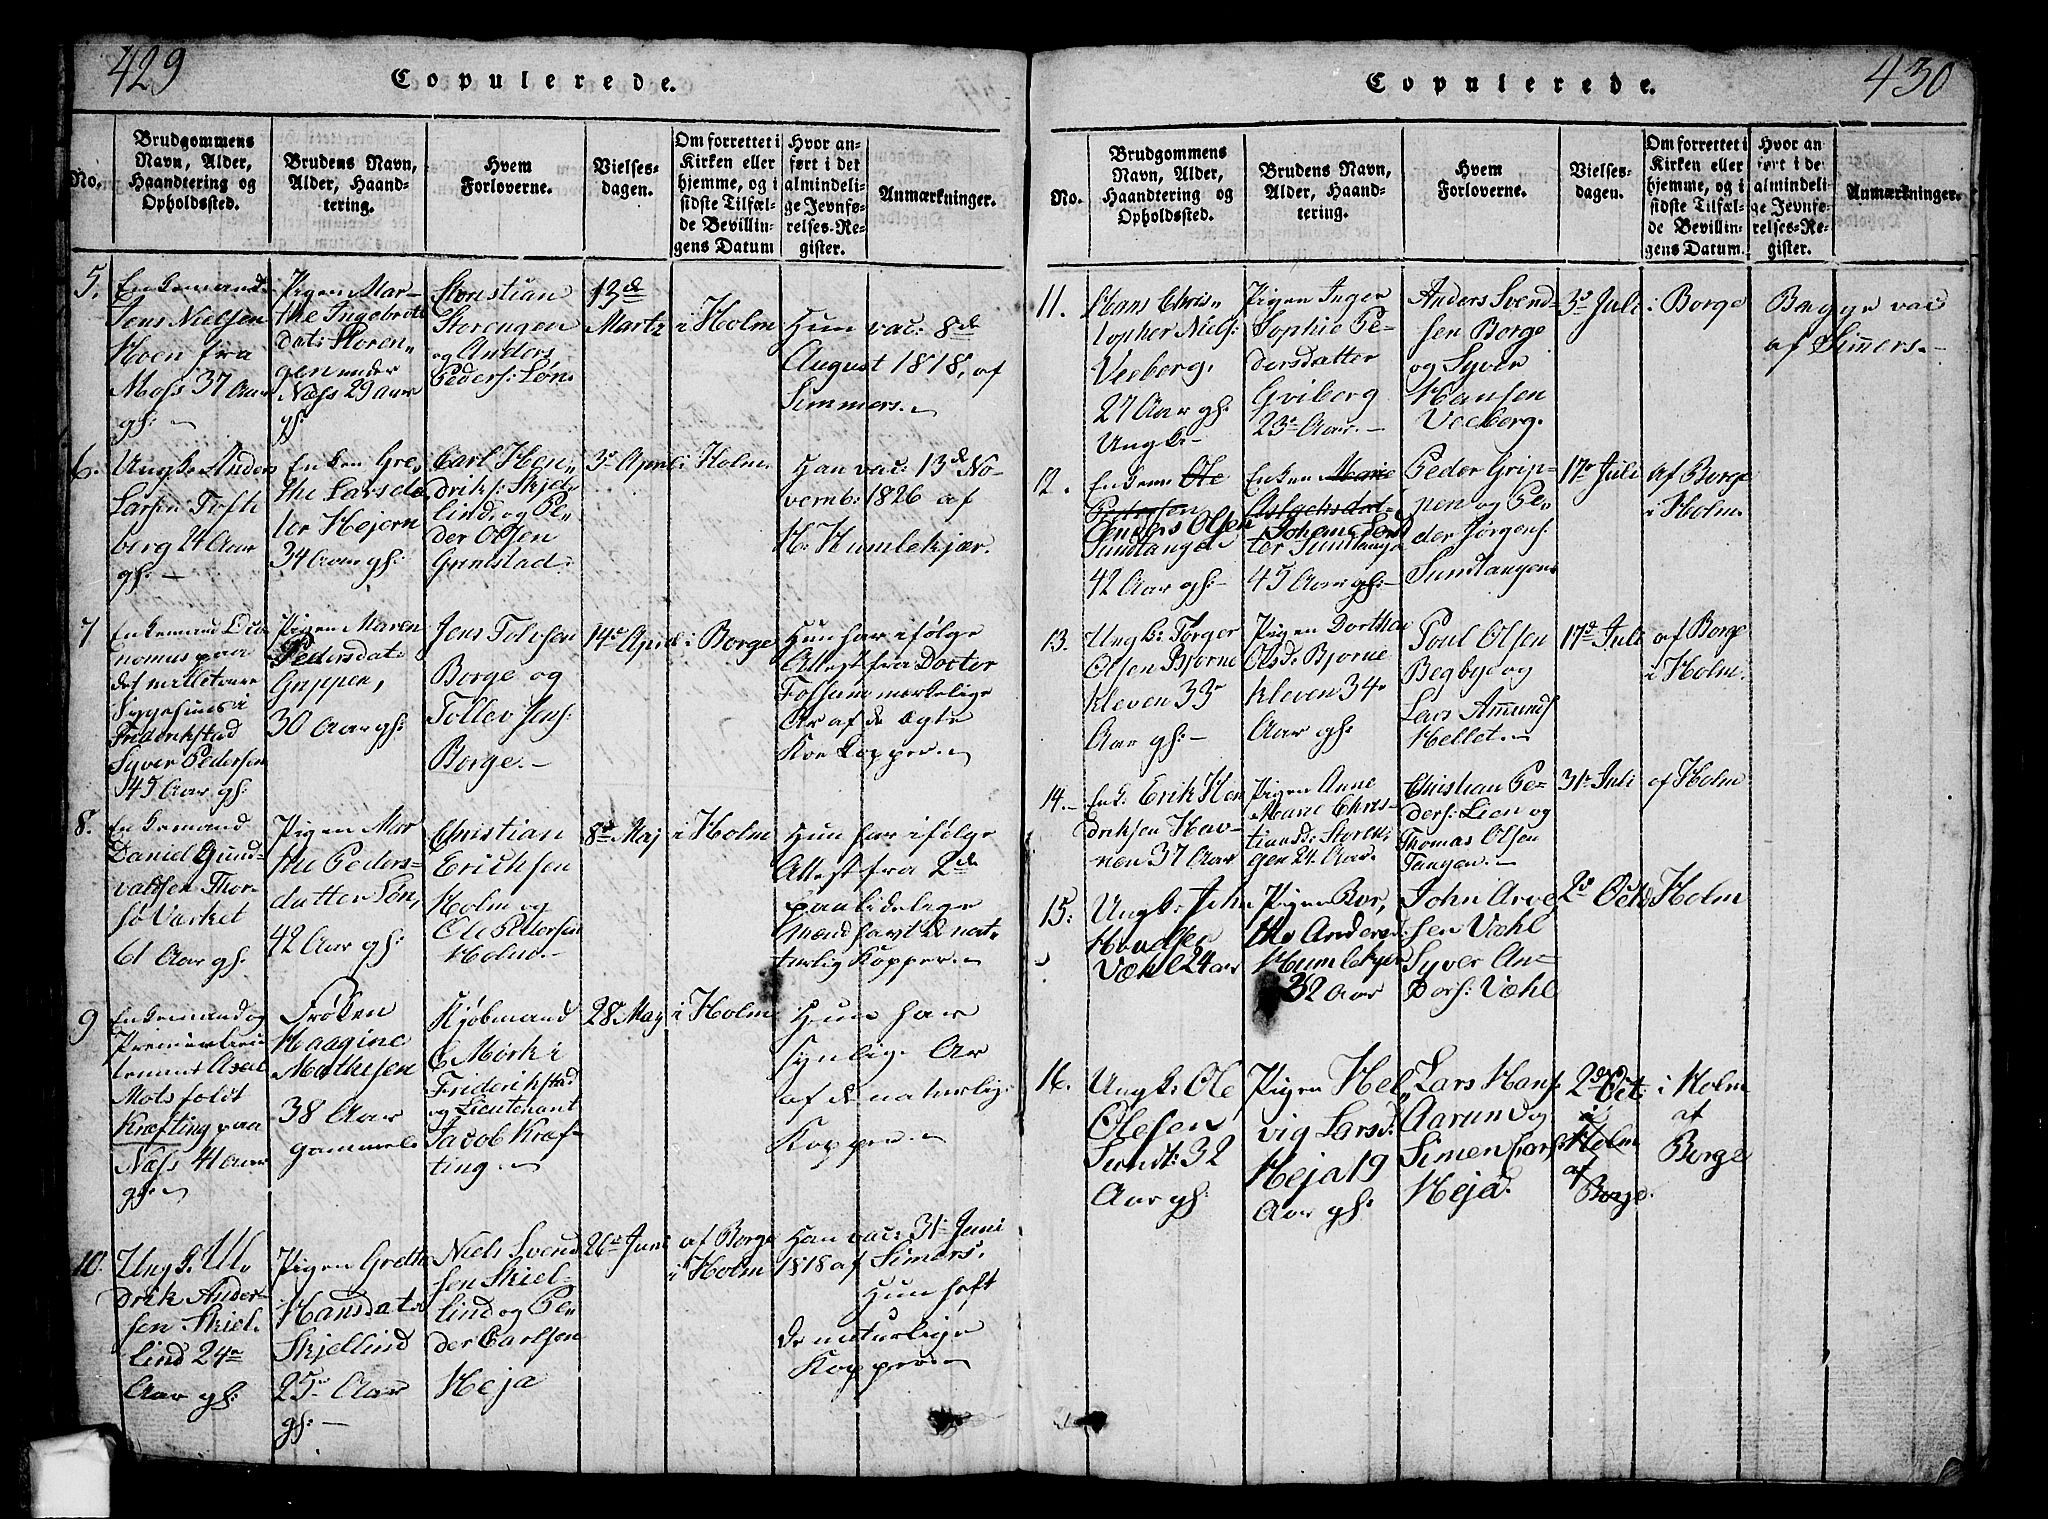 429
Copulerede.
No.
Brudgommens
Navn, Alder,
Haandtering og
Opholdssted.
Brudens Navn,
Alder, Haand-
tering.
Hvem
Forloverne.
Vielses-
dagen.
Om forrettet i
Kirken eller
hjemme, og i
sidste Tilfæl-
de Bevillin-
gens Datum
Hvor an-
ført i det
almindeli-
ge Jevnfø-
relses-Re-
gister.
Anmærkninger.
5.
Enkemand
Jens Nielsen
Hoen fra
Moss 37 Aar
gh:
Pigen Mar-
the Ingebrets
dat: Storen-
gen under
Næss 29 aar
gh:
Christian
Storengen
og Anders
Peders: Løn
13de
Martz
i Holm
Hun vac: 8de
August 1818, af
Simmers.
6.
Ungk. Anders
Larsen Tofte
berg 24 Aar
gh:
Enken Gre-
the Larsda
ter Hejern
34 Aar gh:
Carl Hen-
driks: Skjel
lind, og Pe-
der Olsen
Grimstad.
3e April
i Holm
Han vac: 13de No-
vemb: 1826 af
H. Humlekjær.
7
Enkemand Oeco
nomus paa
det militaire
Sygehuus i
Friderikstad
Syver Pedersen
45 Aar gh:
Pigen Maren
Pedersdat:
Grippen,
30 Aar gh:
Jens Tolvsen
Borge og
Tollev Jens:
Borge.
14e April
i Borge
Hun har ifølge
Attest fra Doctor
Folsum mærkelige
Ar af de ægte
Koe kopper.
8.
Enkemand
Daniel Gund-
valdsen Thor-
sø Værket
61 Aar gh:
Pigen Mar
the Peders-
datter Løn,
42 Aar gh:
Christian
Erichsen
Holm og
Ole Pedersen
Holm.
8de Maj
i Holm
Hun har ifølge
Attest fra 2de
paalidelege
Mænd havt de nat-
turlig Kopper.
9
Enkemand og
Premierlieu-
tenant Axel
Motsfeldt
Kræfting paa
Næss 41 Aar
gh:
Frøken
Haagine
Mathesen
38 Aar
gammel
Kjøbmand
C Mørk i
Friderikstad
og Lieutenant
Jacob Kræf-
ting.
28 Maj
i Holm
Hun har
synlige Ar
af de naturlige
Kopper.
10.
Ungk. Ul-
drik Ander-
sen Skiel-
lind 24e
Aar gh:
Pigen Grethe
Hansdater
Skjellind
25e Aar
gh:
Niels Svend
sen Skiel-
lind og Pe-
der Carlsen
Heja
26e Juni
af Borge
i Holm
Han vac: 31e Juni
1818 af Simers.
Hun haft
de naturlige
Koppere
430
Copulerede.
No.
Brudgommens
Navn, Alder,
Haandtering og
Opholdssted.
Brudens Navn,
Alder, Haand-
tering.
Hvem
Forloverne.
Vielses-
dagen.
Om forrettet i
Kirken eller
hjemme, og i
sidste Tilfæl-
de Bevillin-
gens Datum.
Hvor an
ført i de
almindeli
ge Jevnfø-
relses-Re-
gister.
Anmærkninger.
11.
Hans Chris-
topher Niels:
Veeberg,
27 Aar gh:
Ungk:
Pigen Inger
Sophie Pe-
dersdatter
Gviberg
23e Aar.
Anders Svend-
sen Borge
og Syver
Hansen
Veeberg.
3e Juli
i Borge
Begge vac
af Simers.
12.
Enkem: Ole
Petersen
Olsen
Sundtangen
42 Aar gh:
Enken Marie
Aslachsdat-
ter Sundtang
45 Aar gh:
Peder Grip-
pen og Pe-
der Jørgens:
Sundtangen
17e Juli
af Borge
i Holm.
13.
Ungk: Torger
Olsen Bjørne
kleven 33e
Aar gh:
Pigen Dorthea
Olsd. Bjørne
kleven 34e
Aar gh:
Poul Olsen
Begbye og
Lars Amunds
Hellet.
17de Juli
af Borge
i Holm.
14.
Enk. Erik Hen
driksen Hav-
nen 37 Aar
Pigen Anne
Marie Chris-
tiansd: Storen
gen 24 Aar.
Christian Pe-
ders: Lien og
Thomas Olsen
Tangen.
31e Juli
af Holm
15.
Ungk: Joh
Væhle 24 ar
Pigen Ber,
the Andersd:
Humlekjer
32 Aar
John Arve
sen Væhl
Syver An-
ders: Væhl
2de Octb
Holm
16.
Ungk: Ole
Olesen
Sundt: 32
Aar gh:
Pigen Hel
vig Larsd:
Heja 19
Aar gh:
Lars Hans
Aarum og
Simen Carls
Heja.
2de Oct:
i
Holm
af
Borge.
i Holm
af
Borge